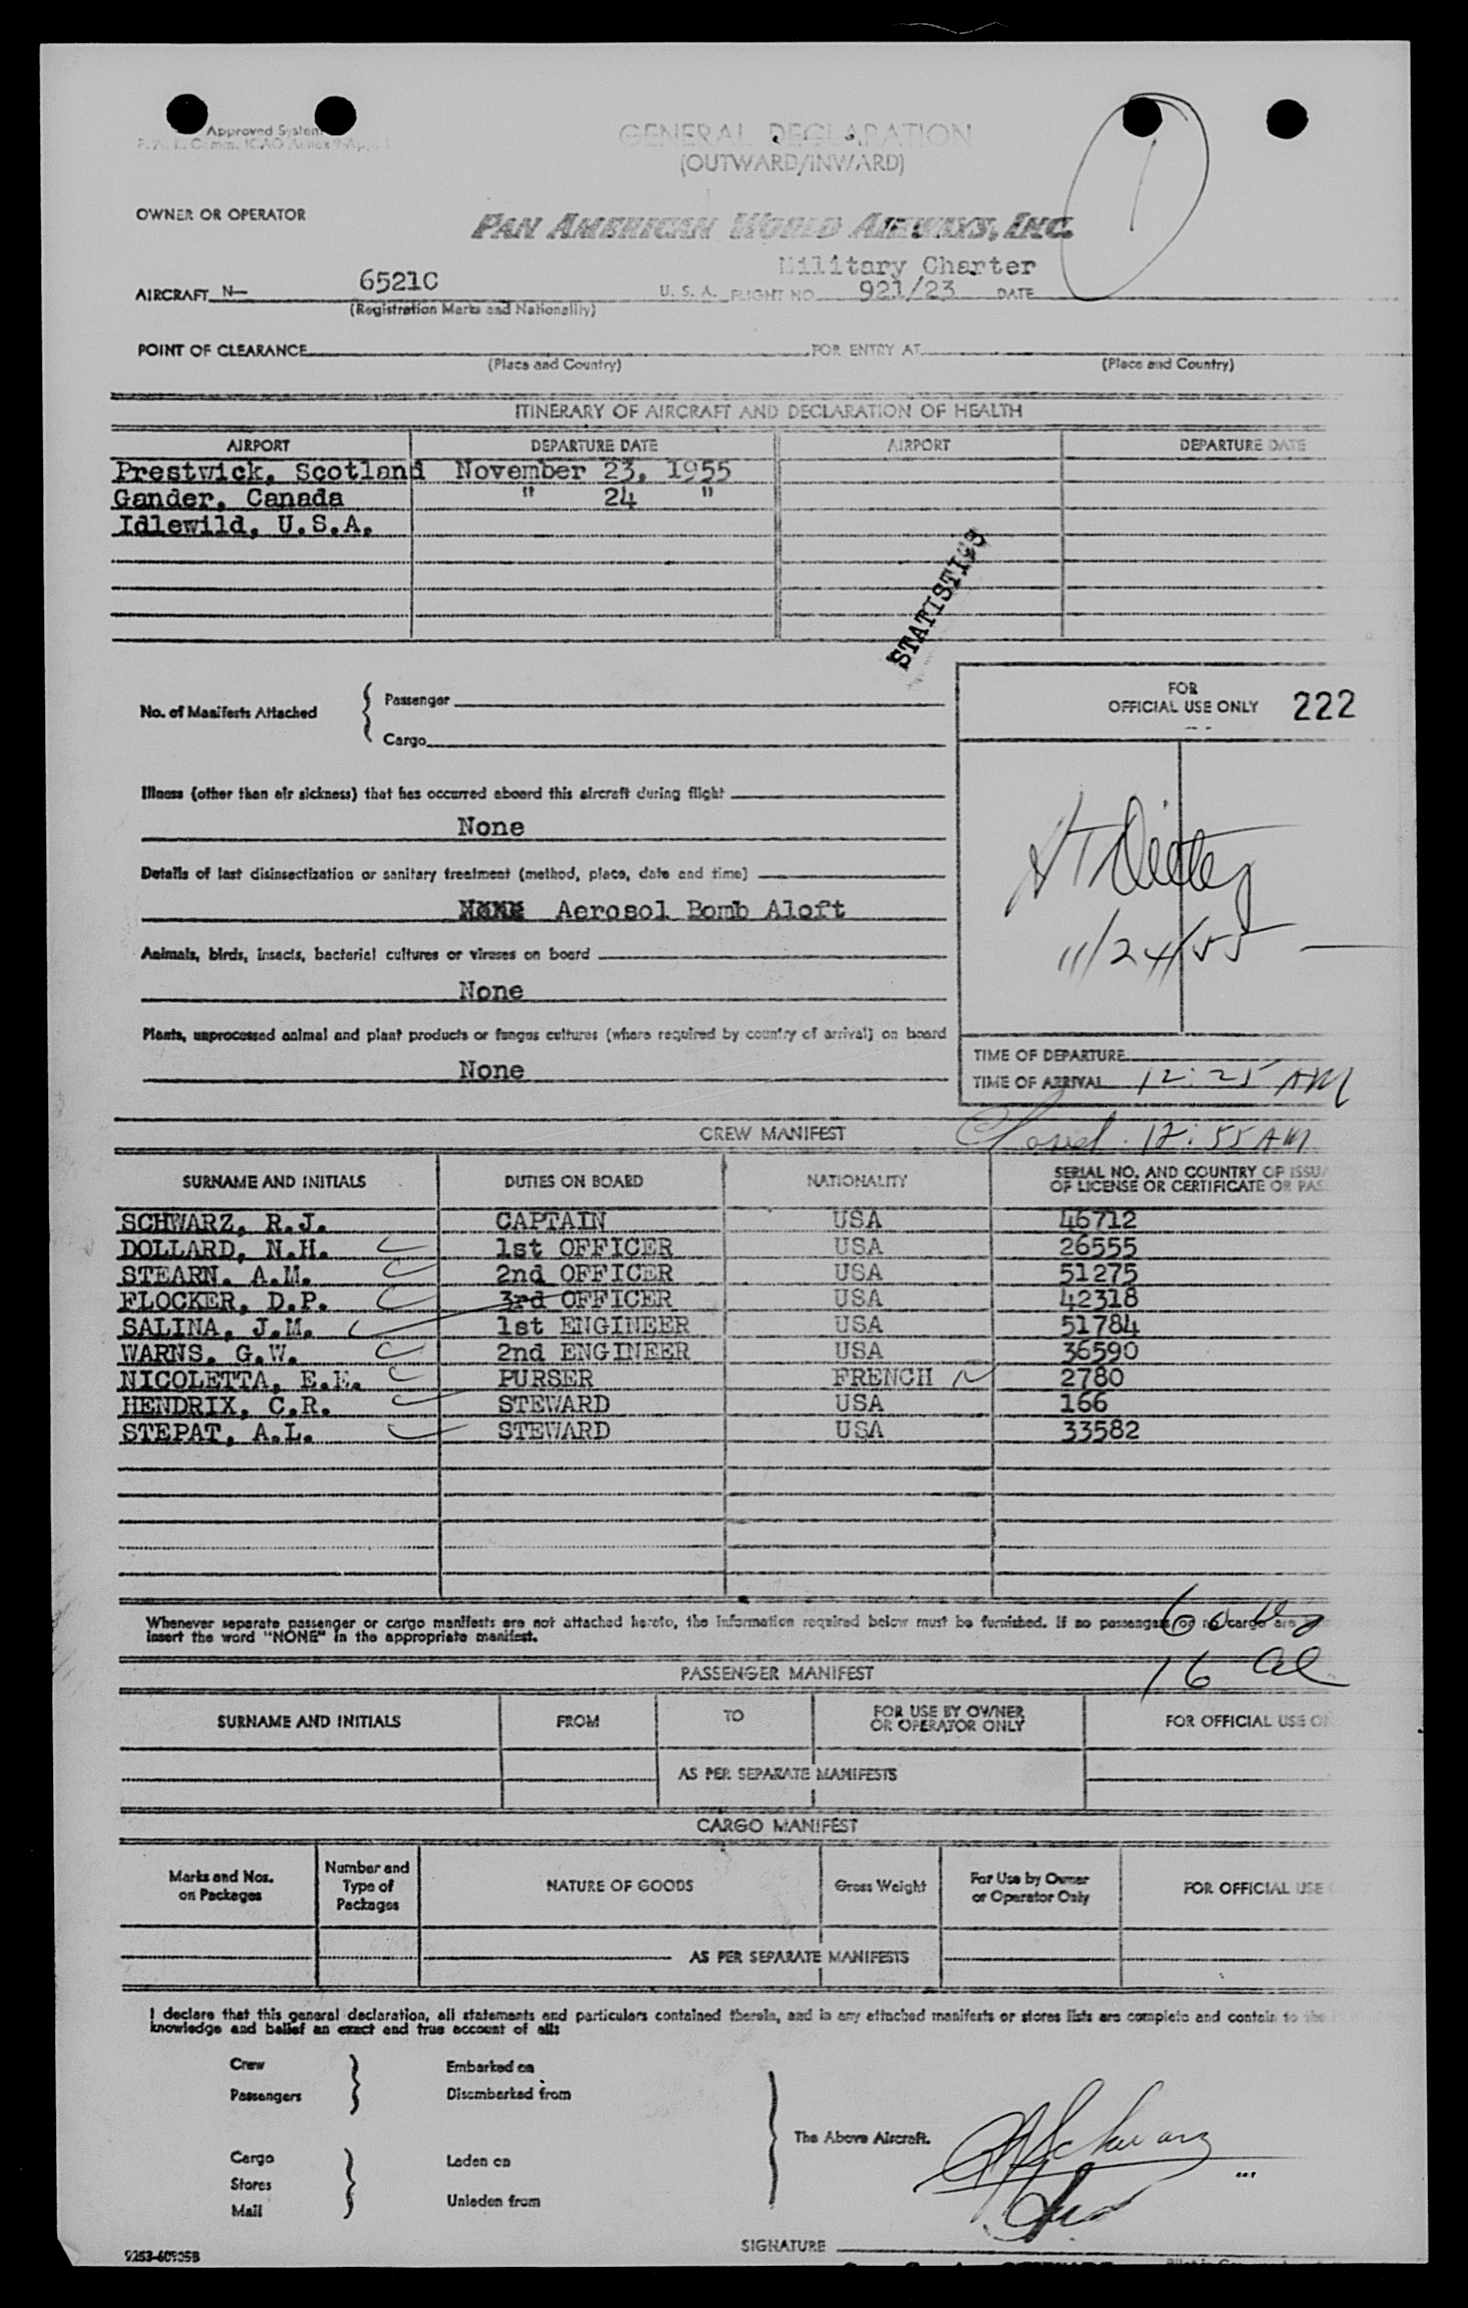 Approved System
GENERAL DECLARATION
(OUTWARD/INWARD)
OWNER OR OPERATOR PAN AMERICAN WORLD AIRWAYS, INC.
Military Charter
AIRCRAFT N— 6521C U. S. A. FLIGHT NO. 921/23 DATE
(Registration Marks and Nationality)
POINT OF CLEARANCE FOR ENTRY AT
(Place and Country) (Place and Country)
ITINERARY OF AIRCRAFT AND DECLARATION OF HEALTH
AIRPORT DEPARTURE DATE AIRPORT DEPARTURE DATE
Prestwick, Scotland November 23, 1955
Gander, Canada " 24 "
Idlewild, U.S.A.
STATISTICS
FOR
OFFICIAL USE ONLY 222
No. of Manifests Attached { Passenger
Cargo
Illness (other than air sickness) that has occurred aboard this aircraft during flight
None
Details of last disinsectization or sanitary treatment (method, place, date and time)
Aerosol Bomb Aloft
11/24/55
Animals, birds, insects, bacterial cultures or viruses on board
None
Plants, unprocessed animal and plant products or fungus cultures (where required by country of arrival) on board
None
TIME OF DEPARTURE
TIME OF ARRIVAL 12:25 AM
12:55 AM
CREW MANIFEST
SURNAME AND INITIALS DUTIES ON BOARD NATIONALITY SERIAL NO. AND COUNTRY OF ISSU
OF LICENSE OR CERTIFICATE OR PAS
SCHWARZ, R.J. CAPTAIN USA 46712
DOLLARD, N.H. 1st OFFICER USA 26555
STEARN. A.M. 2nd OFFICER USA 51275
FLOCKER, D.P. 3rd OFFICER USA 42318
SALINA, J.M. 1st ENGINEER USA 51784
WARNS. G.W. 2nd ENGINEER USA 36590
NICOLETTA, E.E. PURSER FRENCH 2780
HENDRIX, C.R. STEWARD USA 166
STEPAT, A.L. STEWARD USA 33582
Whenever separate passenger or cargo manifests are not attached hereto, the information required below must be furnished. If no passengers or no cargo are
insert the word "NONE" in the appropriate manifest.
16
PASSENGER MANIFEST
SURNAME AND INITIALS FROM TO FOR USE BY OWNER
OR OPERATOR ONLY FOR OFFICIAL USE ON
AS PER SEPARATE MANIFESTS
CARGO MANIFEST
Marks and Nos.
on Packages Number and
Type of
Packages NATURE OF GOODS Gross Weight For Use by Owner
or Operator Only FOR OFFICIAL USE
AS PER SEPARATE MANIFESTS
I declare that this general declaration, all statements and particulars contained therein, and in any attached manifests or stores lists are complete and contain to the
knowledge and belief an exact and true account of all:
Crew Embarked on
Passengers Disembarked from
The Above Aircraft.
Cargo Laden on
Stores
Mail Unladen from
SIGNATURE
9263-60905B